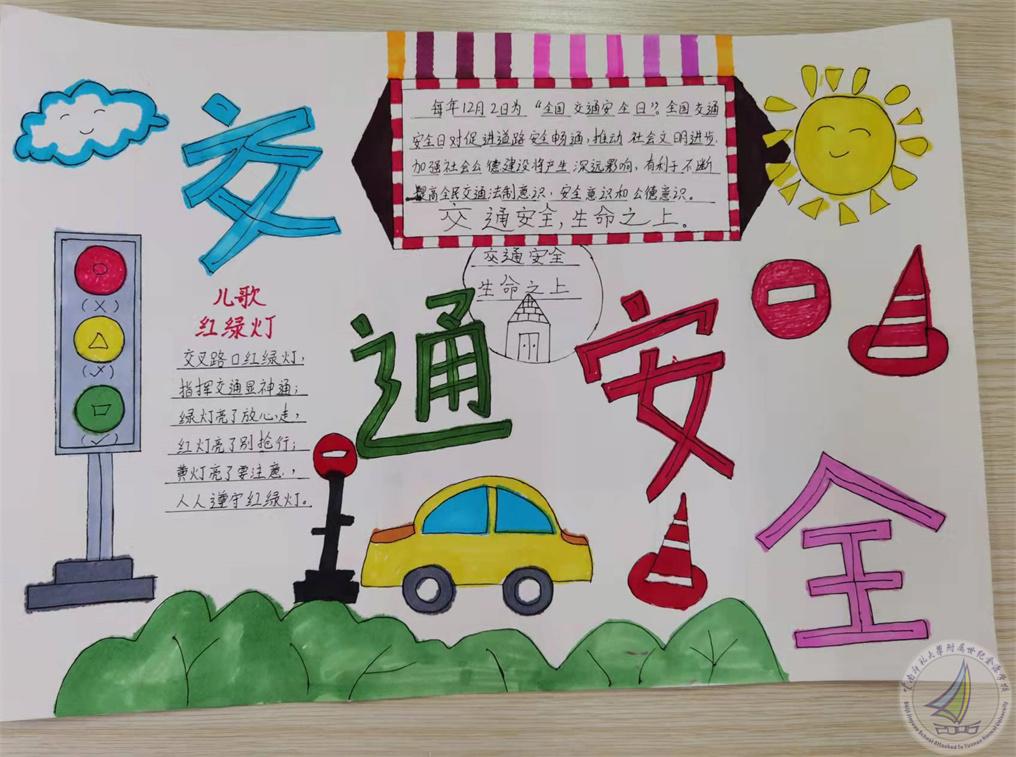 交通安全
每年12月2日为“全国交通安全日”。全国交通
安全日对促进道路安全畅通，推动社会文明进步，
加强社会公德建设将产生深远影响，有利于不断
提高全民交通法制意识、安全意识和公德意识。
交通安全，生命之上。
交通安全
生命之上
儿歌
红绿灯
交叉路口红绿灯，
指挥交通显神通；
绿灯亮了放心走，
红灯亮了别抢行；
黄灯亮了要注意，
人人遵守红绿灯。
(×)
(✓)
(✓)